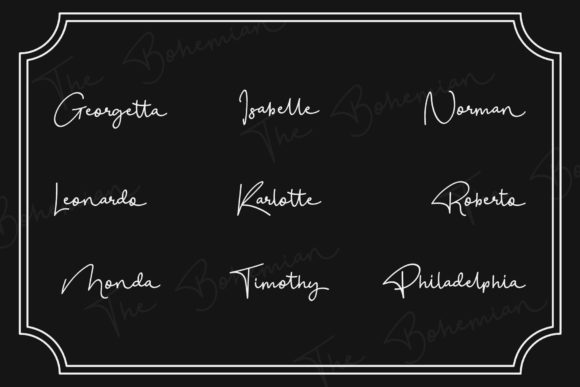 The Bohemian
Georgetta Isabelle Norman
The Bohemian
Leonardo Karlotte Roberto
The Bohemian
Monda Timothy Philadelphia
The Bohemian
The Bohemian